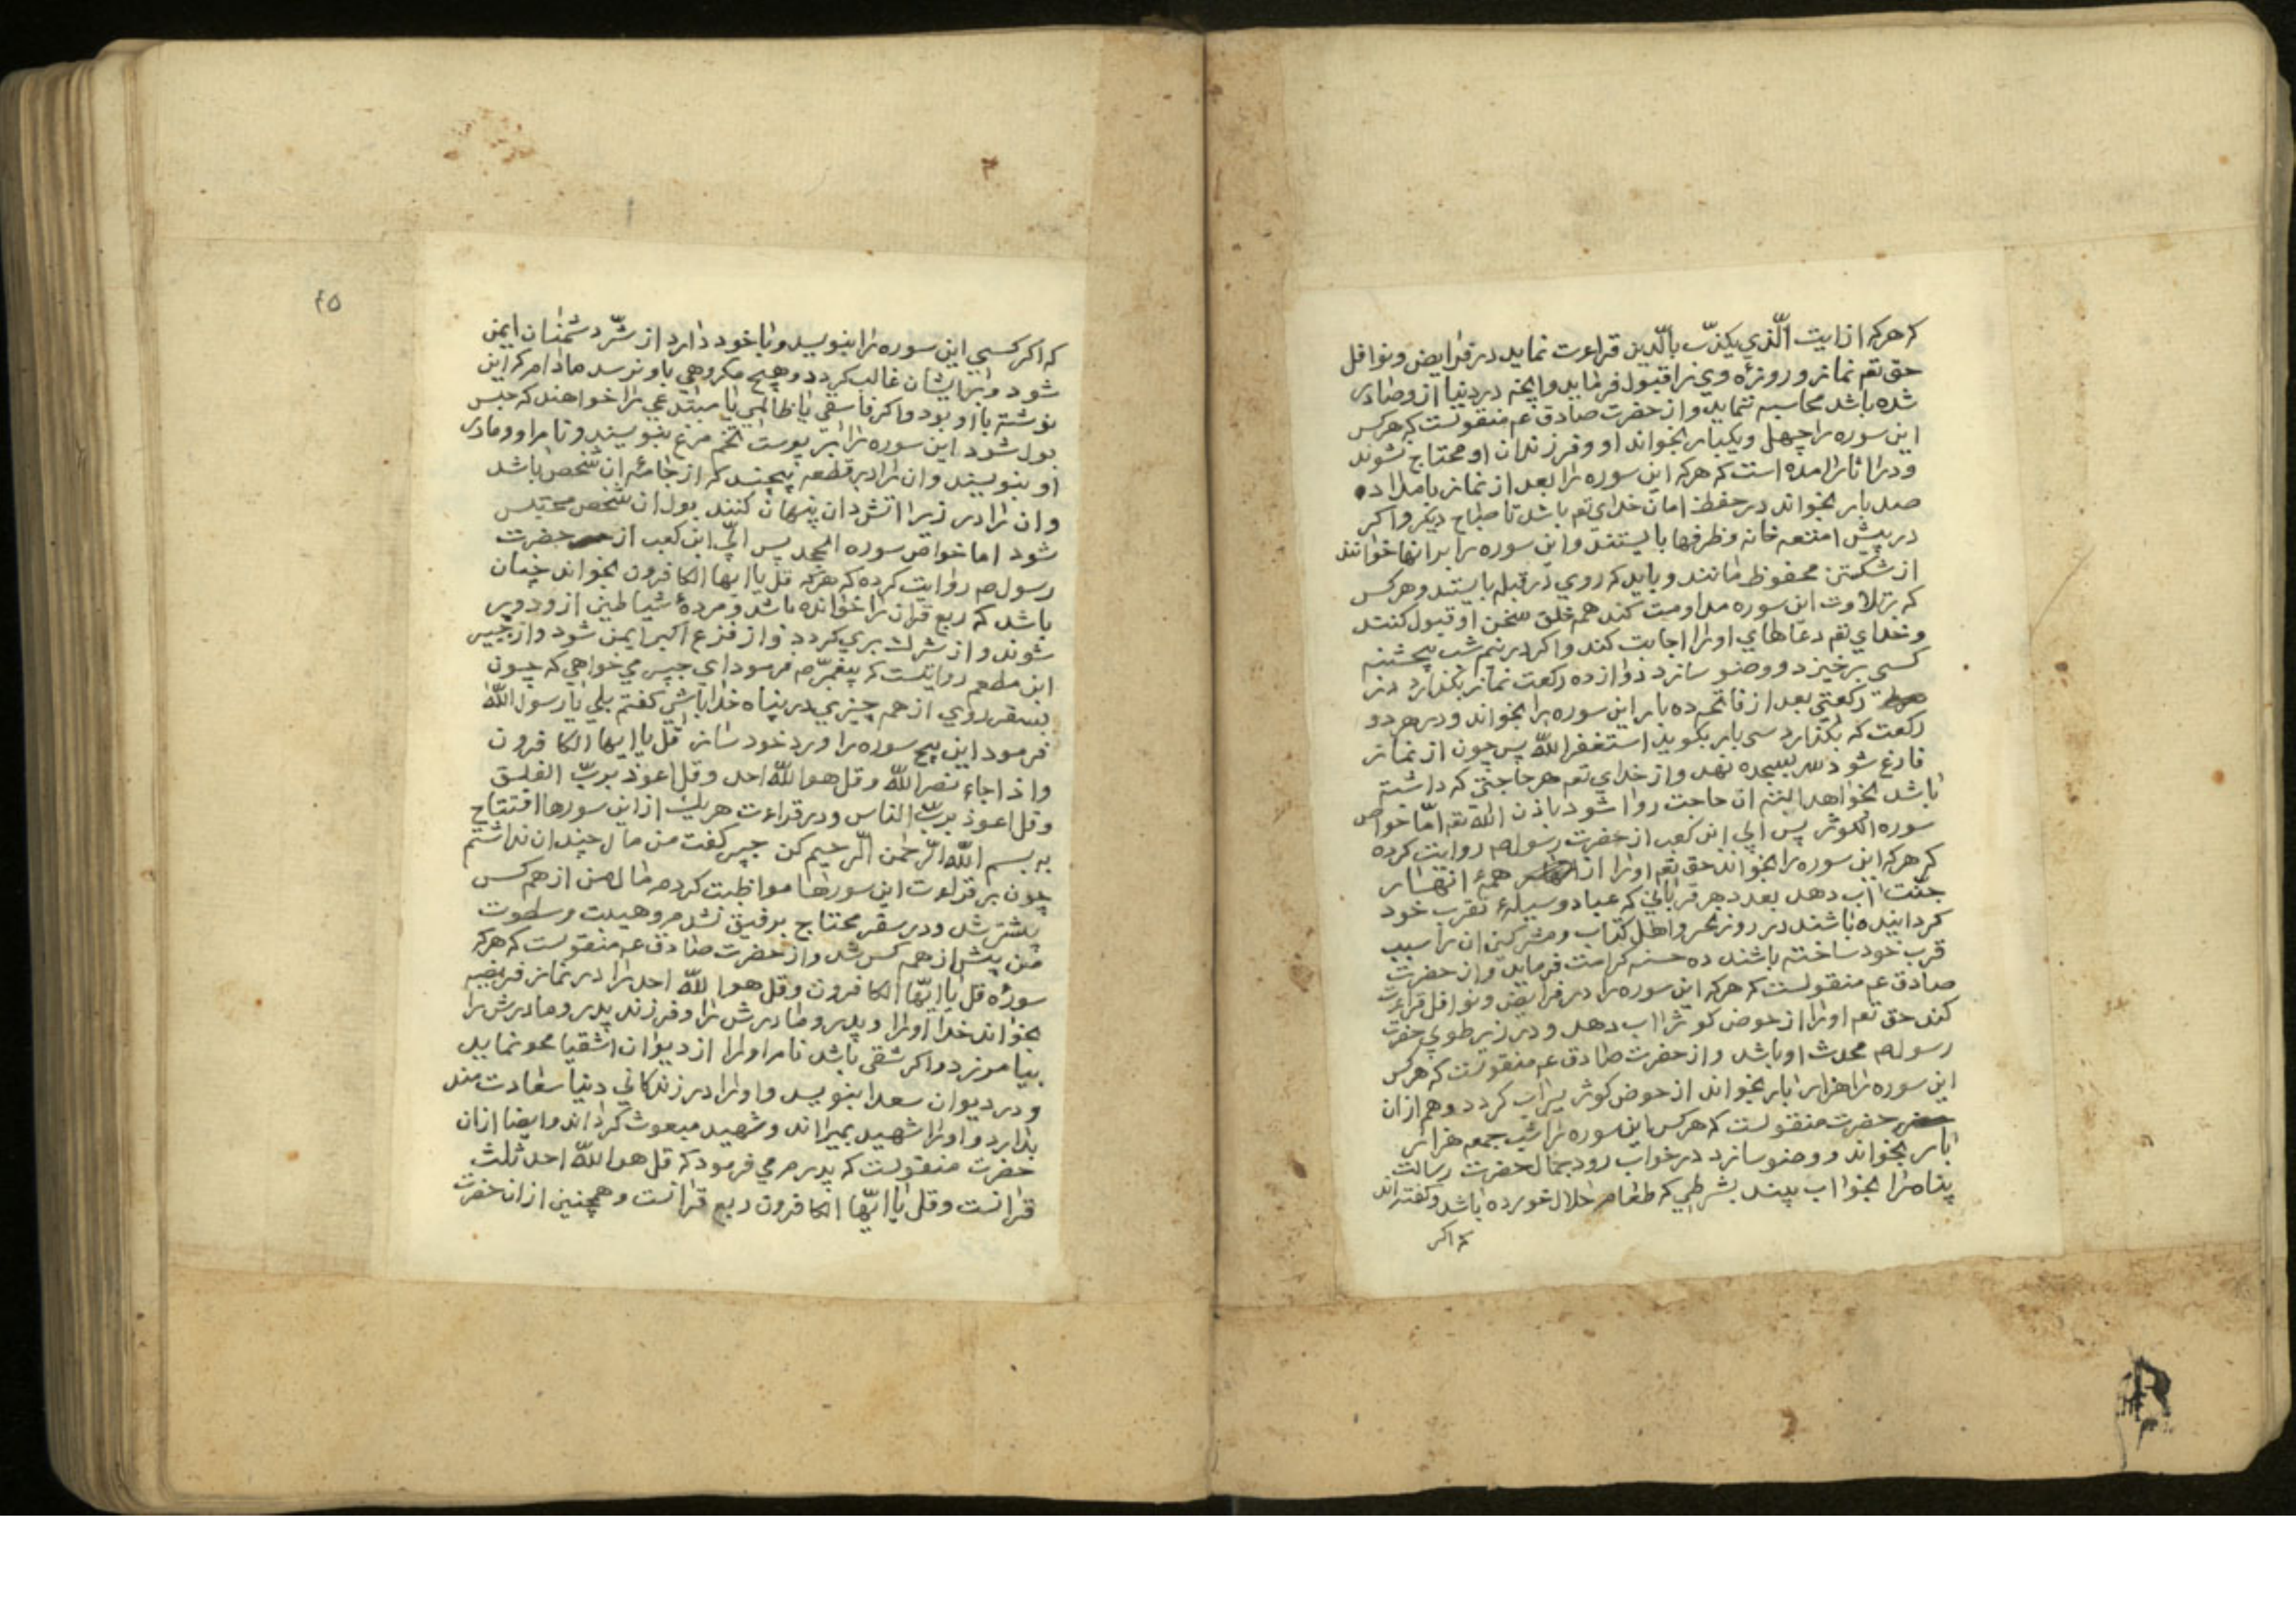 که هرکه از ایت الّذي یکذّب بالّدین قراءت نماید در فرایض و نوافل
حق تعم نماز و روزه وی را قبول فرماید و انچه در دنیا از وصادر
شده باشد محاسبه ننماید و از حضرت صادق عم منقولست که هرکس
این سوره را چهل و یکبار بخواند او و فرزندان او محتاج نشوند
و در اثار امده است که هرکه این سوره را بعد از نماز بامداد ده
صد بار بخواند در حفظ و امان خدای تعم باشد تا صباح دیکر و اکر
در پیش امتعه خانه و ظرفها بایستند و این سوره را بر انها خوانند
از شکستن محفوظ مانند و باید که روي در قبله بایستد و هرکس
که بتلاوت این سوره مداومت کند همه خلق سخن او قبول کنند
و خدای تعم دعاهاي او را اجابت کند و اکر در نیم شب پنجشنبه
کسی برخیزد و وضو سازد و دوازده رکعت نماز بکذارد در
هر رکعتي بعد از فاتحه ده بار این سوره را بخواند و در هر دو
رکعت که بکذارد سی بار بکوید استغفر اللّه پس چون از نماز
فارغ شود سر بسجده نهد و از خدای تعم هر حاجتی که داشته
باشد بخواهد البته ان حاجت روا شود باذن اللّه تعم امّا خواص
سوره الکوثر پس ابي ابن کعب از حضرت رسول ص روایت کرده
که هرکه این سوره را بخواند حق تعم او را از همهٔ انهار
جنّت اب دهد بعدد هر قرباني که عباد وسیلهٔ تقرب خود
کردانیده باشند در روز نحر و اهل کتاب و مشرکین ان را سبب
قرب خود ساخته باشند ده حسنه کرامت فرماید و از حضرت
صادق عم منقولست که هرکه این سوره را در فرایض و نوافل قراءت
کند حق تعم او را از حوض کوثر اب دهد و در زیر طوبي حضرت
رسول ص محدث او باشد و از حضرت صادق عم منقولست که هرکس
این سوره را هزار بار بخواند از حوض کوثر سیراب کردد و هم از ان
حضرت منقولست که هرکس این سوره را شب جمعه هزار
بار بخواند و وضو سازد در خواب رود جمال حضرت رسالت
پناه را بخواب بیند بشرطي که طعام حلال خورده باشد و کفته اند
که اکر
٤٥
که اکر کسي این سوره را بنویسد و با خود دارد از شرّ دشمنان ایمن
شود و بر ایشان غالب کردد و هیچ مکروهي باو نرسد مادام که این
نوشته با او بود و اکر فاسقي یا ظالمي یا مبتدعي را خواهند که حبس
بول شود این سوره را بر پوست تخم مرغ بنویسند و نام او و مادر
او بنویسند و ان را در قطعه پیچند که از جامهٔ ان شخص باشد
و ان را در زیر اتش دان پنهان کنند بول ان شخص محتبس
شود اما خواص سوره الجحد پس ابّي ابن کعب از حضرت
رسول ص روایت کرده که هرکه قل یا ایها الکافرون بخواند چنان
باشد که ربع قران را خوانده باشد و مردهٔ شیاطین از و دور
شوند و از شرك بري کردد و از فزع اکبر ایمن شود و از جبیر
ابن مطعم روایتست که پیغمبر ص فرمود اي جبیر مي خواهي که چون
بسفر روي از همه چیزي در پناه خدا باشي کفتم بلي یا رسول اللّه
فرمود این پنج سوره را ورد خود ساز قل یا ایها الکافرون
و اذا جاء نصر اللّه و قل هو اللّه احد و قل اعوذ بربّ الفلق
و قل اعوذ بربّ الناس و در قراءت هریك از این سورها افتتاح
به بسم اللّه الرّحمن الّرحیم کن جبیر کفت من مال چندان نداشتم
چون بر قراءت این سورها مواظبت کردم مال من از همه کس
بیشتر شد و در سفر محتاج برفیق نشدم و هیبت و سطوت
من پیش از همه کس شد و از حضرت صادق عم منقولست که هرکه
سورهٔ قل یا ایّها الکافرون و قل هو اللّه احد را در نماز فریضه
بخواند خدا او را و پدر و مادرش را و فرزند پدر و مادرش را
بیامرزد و اکر شقي باشد نام او را از دیوان اشقیا محو نماید
و در دیوان سعدا بنویسد و او را در زندکاني دنیا سعادت مند
بدارد و او را شهید بمیراند و شهید مبعوث کرداند و ایضا از ان
حضرت منقولست که پدرم مي فرمود که قل هو اللّه احد ثلث
قرانست و قل یا ایّها الکافرون ربع قرانست و همچنین از ان حضرت